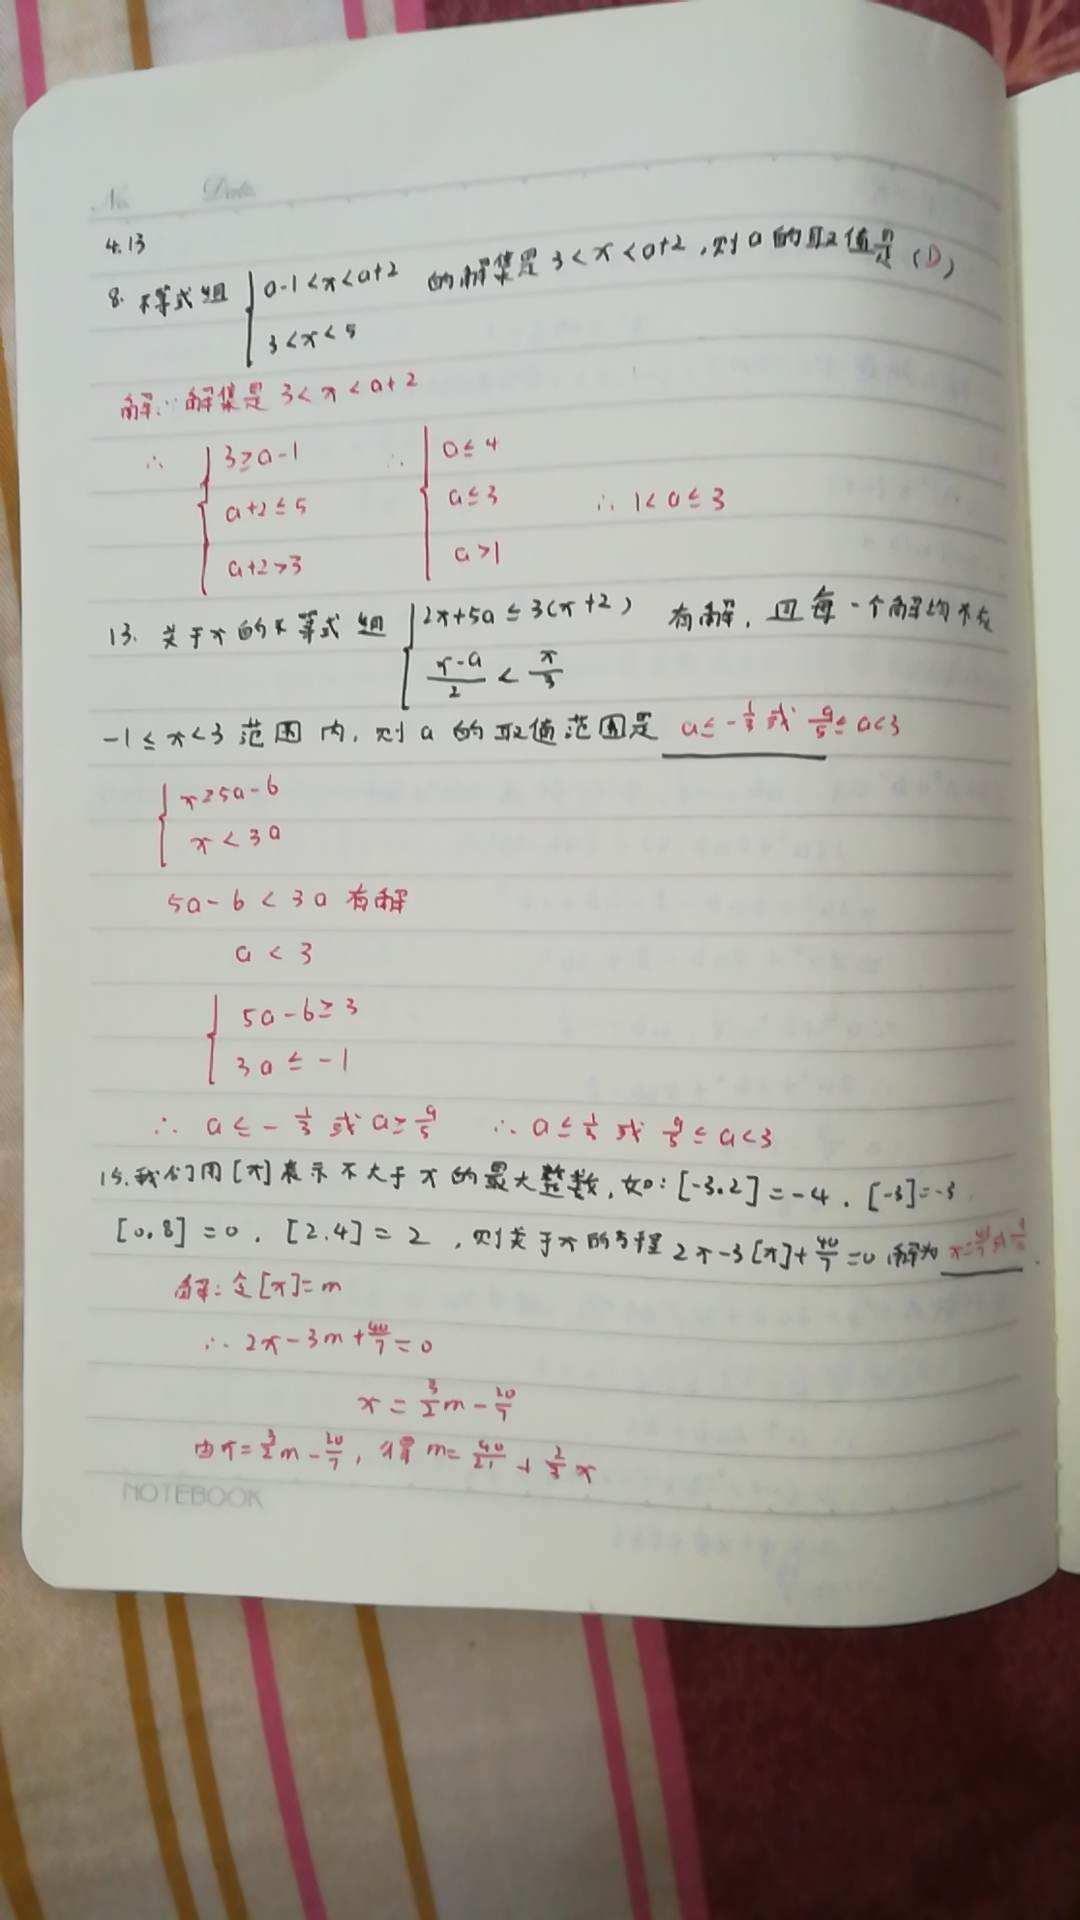 No. Date
4.13
8. 不等式组 { a-1<x<a+2 的解集是 3<x<a+2, 则a的取值是 (D)
3<x<5
解:∵解集是 3<x<a+2
∴ { 3≥a-1 ∴ { a≤4
a+2≤5 a≤3 ∴ 1<a≤3
a+2>3 a>1
13. 关于x的不等式组 { 2x+5a≤3(x+2) 有解, 且每一个解均不在
(x-a)/2 < x/3
-1≤x<3 范围内, 则a的取值范围是 a≤-1/3 或 9/5≤a<3
{ x≥5a-6
x<3a
5a-6<3a 有解
a<3
{ 5a-6≥3
3a≤-1
∴ a≤-1/3 或 a≥9/5 ∴ a≤1/3 或 9/5≤a<3
15. 我们用[x]表示不大于x的最大整数, 如: [-3.2]=-4. [-3]=-3
[0.8]=0. [2.4]=2, 则关于x的方程 2x-3[x]+40/7=0 解为
解: 令[x]=m
∴ 2x-3m+40/7=0
x=3/2m-20/7
由x=3/2m-20/7, 得 m=40/21+2/3x
NOTEBOOK